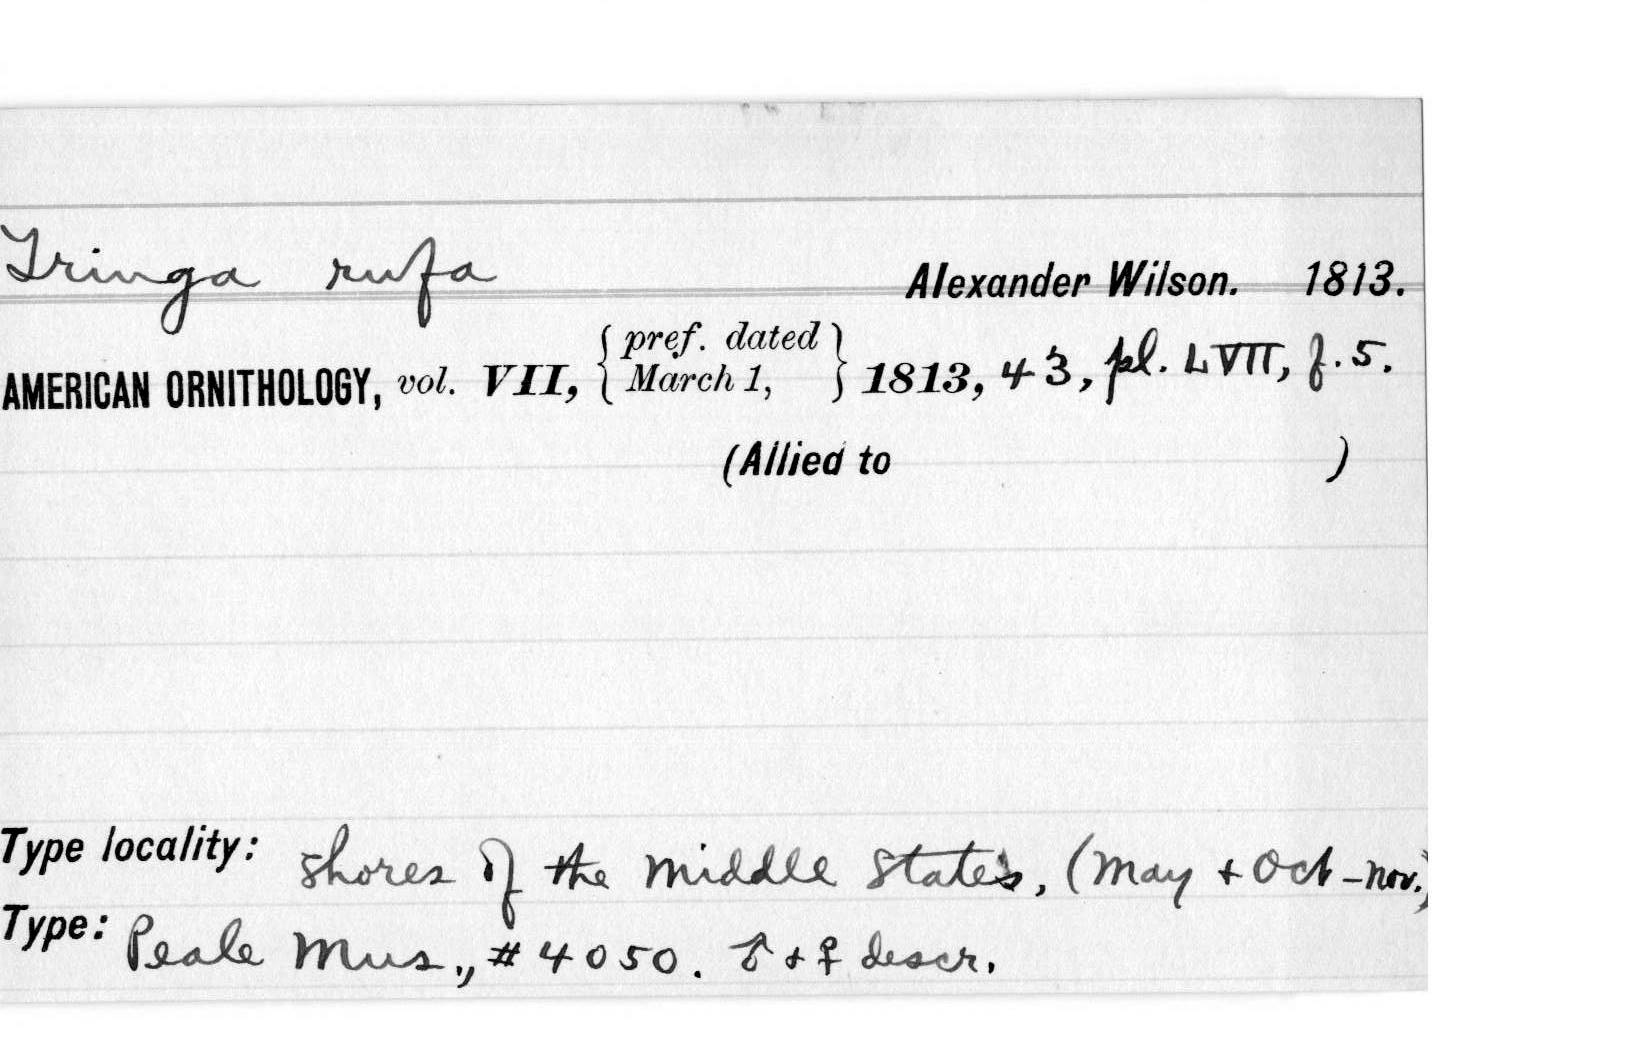 Tringa rufa
Alexander Wilson. 1813.
AMERICAN ORNITHOLOGY, vol. VII, { pref. dated March 1, } 1813, 43, pl. LVII, f. 5.
(Allied to )
Type locality: Shores of the middle states, (May + Oct-Nov.)
Type: Peale Mus., #4050. ♂ + ♀ descr.